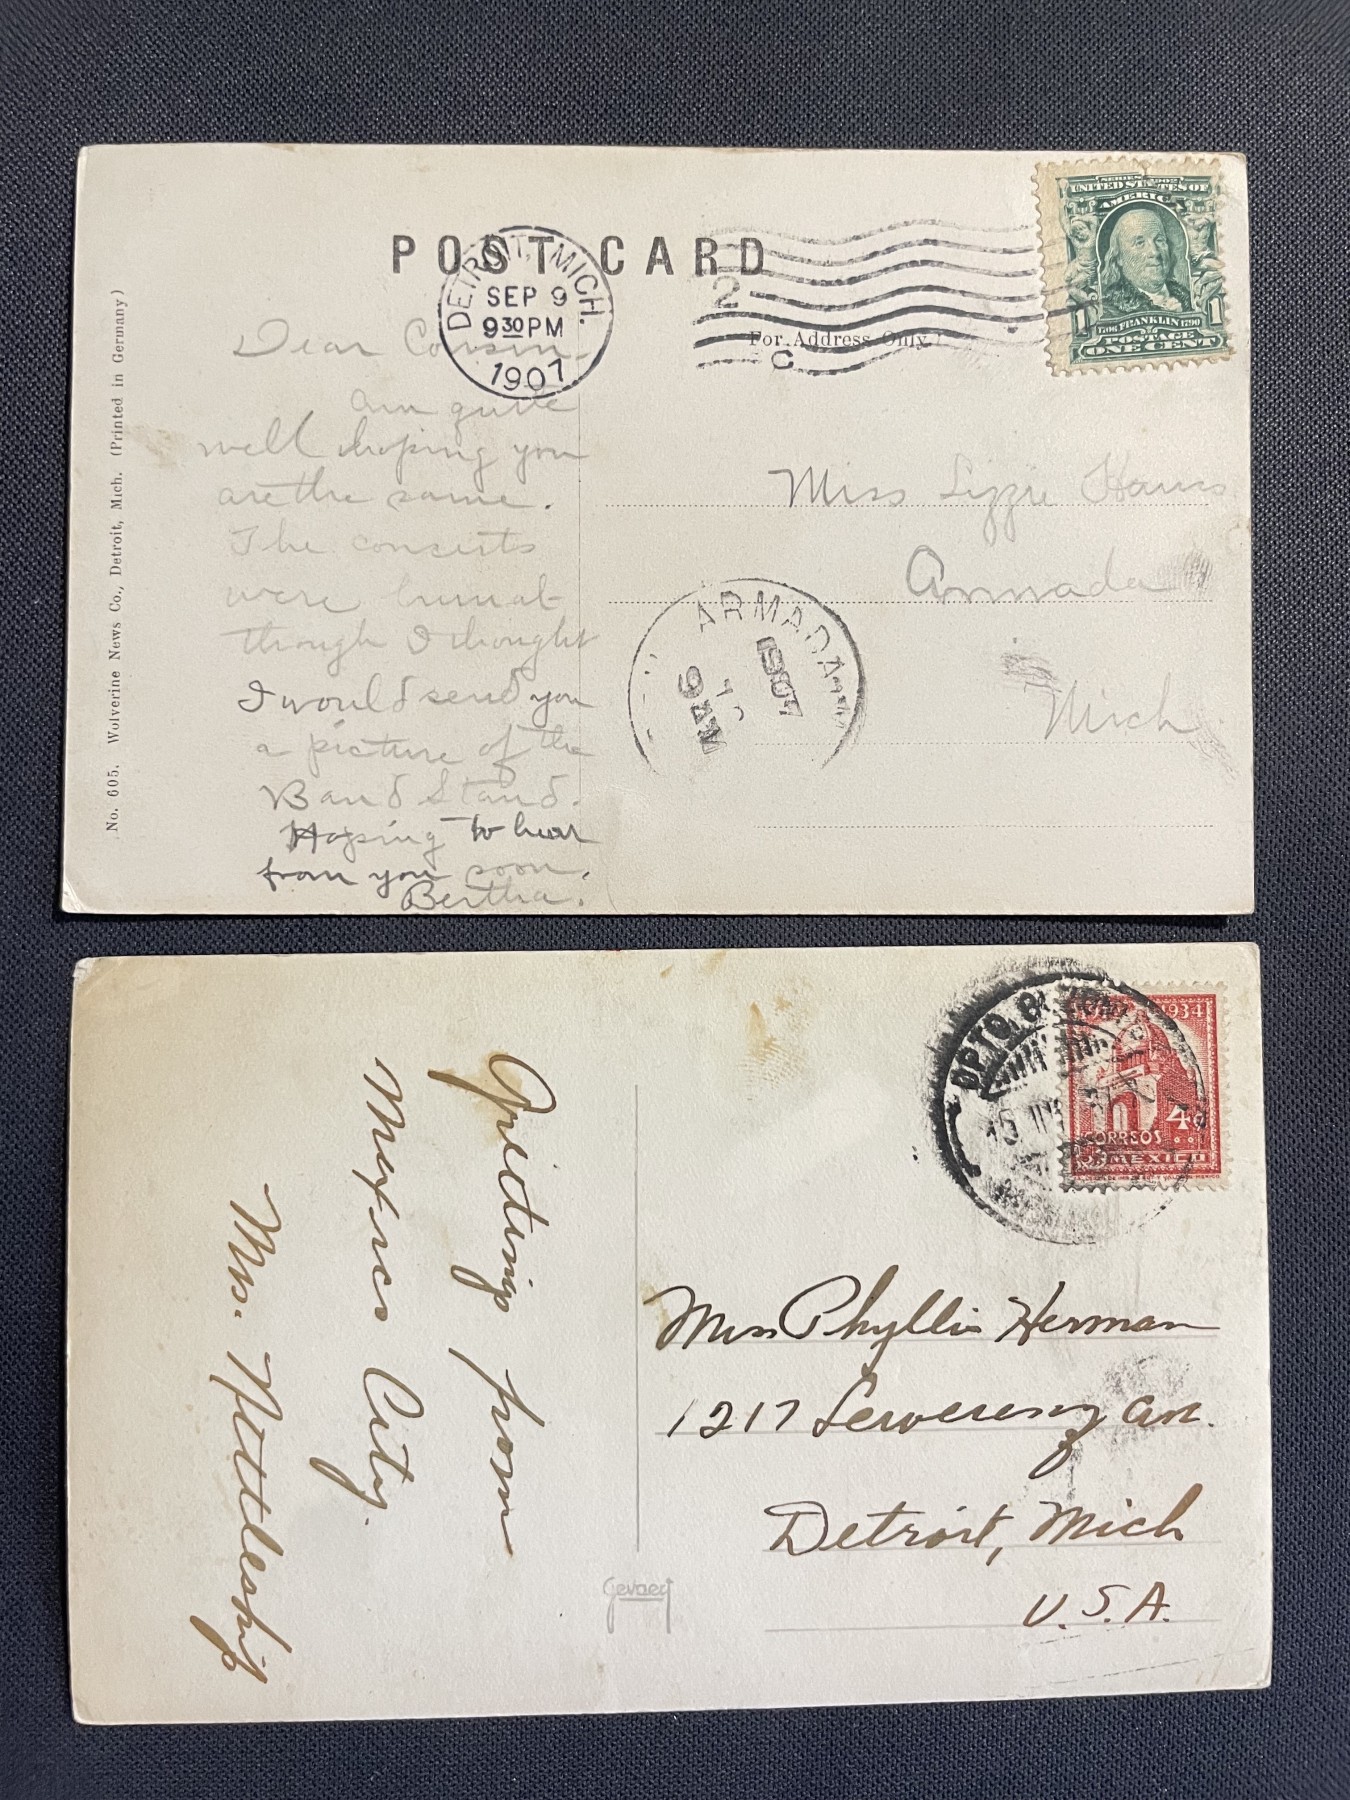 POST CARD
DETROIT, MICH.
SEP 9
9 30 PM
1907
2
C
For Address Only.
SERIES 1902
UNITED STATES OF
AMERICA
1706 FRANKLIN 1790
1 1
POSTAGE
ONE CENT
No. 605. Wolverine News Co., Detroit, Mich. (Printed in Germany)
Dear Cousin
am quite
well hoping you
are the same.
The concerts
were
though I thought
I would send you
a picture of the
Band Stand.
Hoping to hear
from you soon.
Bertha.
Miss Lizzie
Armada
Mich
ARMADA
1907
9 AM
1934
4c
CORREOS
MEXICO
DPTO.
15
Greetings from
Mexico City.
Mrs. Nettleship
Miss Phyllis Herman
1217 Ave.
Detroit, Mich
U.S.A.
Gevaert